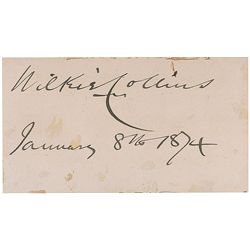 Wilkie Collins
January 8th 1874